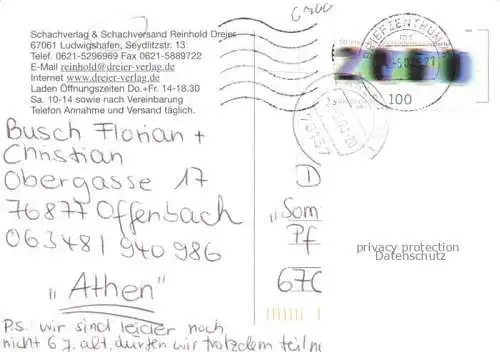 Schachverlag & Schachversand Reinhold Dreier
67061 Ludwigshafen, Seydlitzstr. 13
Telef. 0621-5296969 Fax 0621-5889722
E-Mail reinhold@dreier-verlag.de
Internet www.dreier-verlag.de
Laden Öffnungszeiten Do.+Fr. 14-18.30
Sa. 10-14 sowie nach Vereinbarung
Telefon Annahme und Versand täglich.
Busch Florian +
Christian
Obergasse 17
76877 Offenbach
06348/ 940 986
"Athen"
P.S. wir sind leider noch
nicht 6 J. alt, dürfen wir trotzdem teil
BRIEFZENTRUM
100
D
"Som
Pf
670
privacy protection
Datenschutz